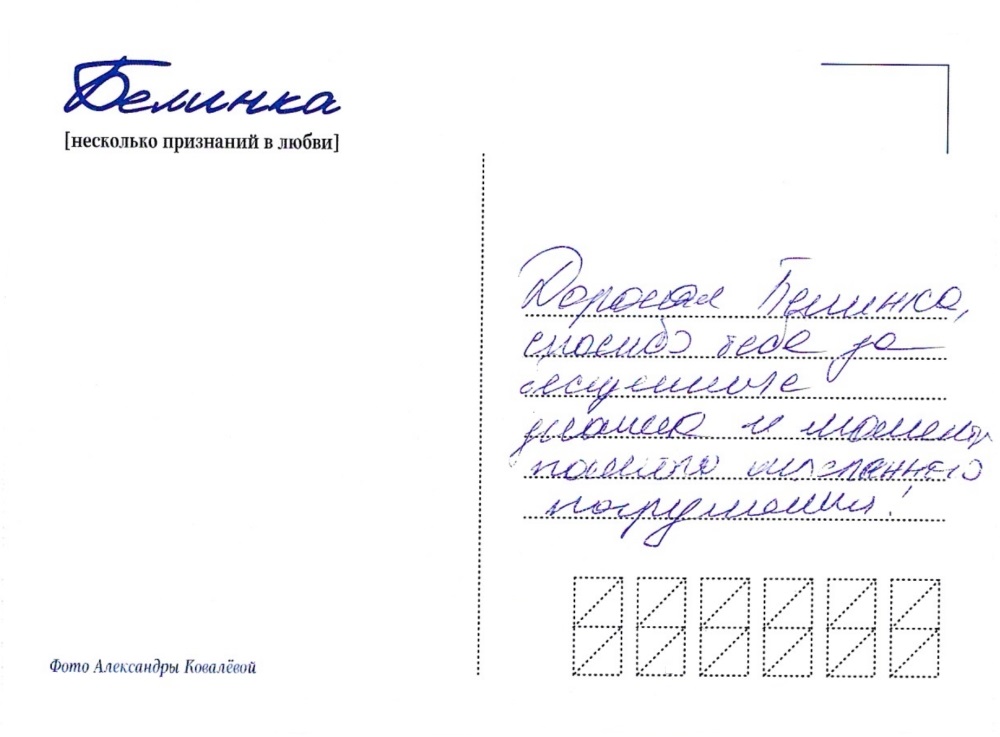 Белинка
[несколько признаний в любви]
Дорогая Белинка,
спасибо тебе за
бесценные
знания и моменты
полного мысленного
погружения!
Фото Александры Ковалёвой